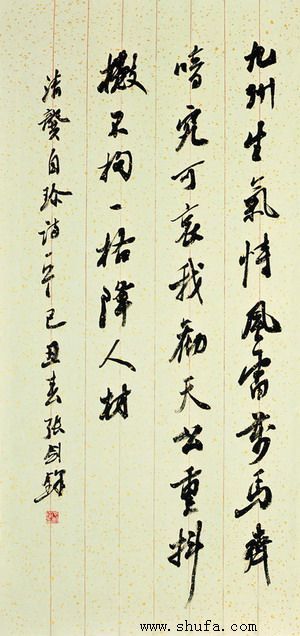 九州生氣恃風雷萬馬齊
喑究可哀我勸天公重抖
擻不拘一格降人材
清龔自珍詩一首己丑春張劍
www.shufa.com